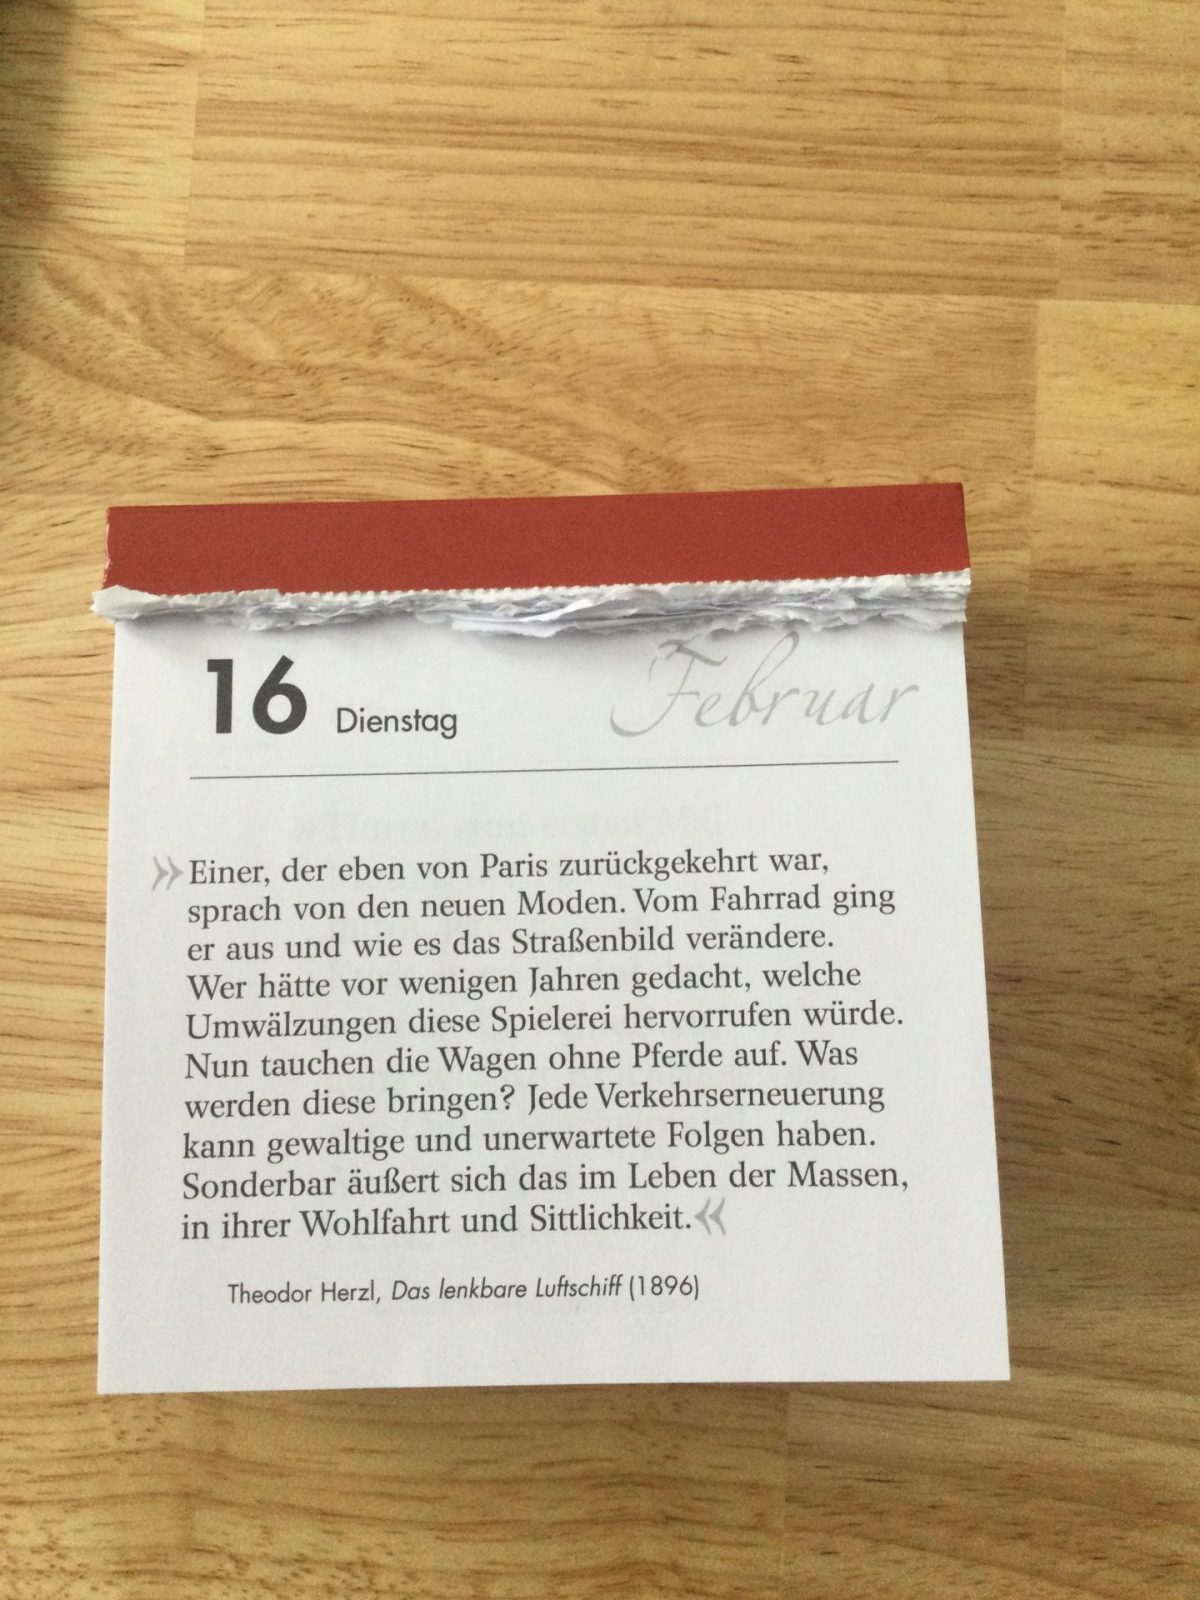 16 Dienstag Februar
»Einer, der eben von Paris zurückgekehrt war,
sprach von den neuen Moden. Vom Fahrrad ging
er aus und wie es das Straßenbild verändere.
Wer hätte vor wenigen Jahren gedacht, welche
Umwälzungen diese Spielerei hervorrufen würde.
Nun tauchen die Wagen ohne Pferde auf. Was
werden diese bringen? Jede Verkehrserneuerung
kann gewaltige und unerwartete Folgen haben.
Sonderbar äußert sich das im Leben der Massen,
in ihrer Wohlfahrt und Sittlichkeit.«
Theodor Herzl, Das lenkbare Luftschiff (1896)